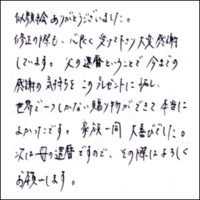 似顔絵ありがとうございました。
修正の際も、心良く受けて下さり大変感謝
しています。父の還暦ということで今までの
感謝の気持ちをこのプレゼントに託し、
世界で一つしかない贈り物ができて本当に
よかったです。家族一同大喜びでした。
次は母の還暦ですので、その際はよろしく
お願いします。